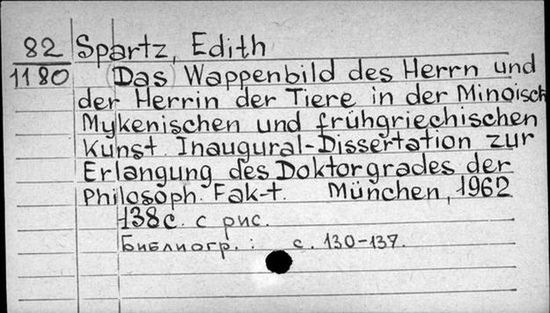 82 Spartz, Edith
1180 (Das) Wappenbild des Herrn und
der Herrin der Tiere in der Minoisch
Mykenischen und frühgriechischen
Kunst. Inaugural-Dissertation zur
Erlangung des Doktorgrades der
Philosoph. Fak-t. München, 1962
138с. с рис.
Библиогр.: с. 130-137.